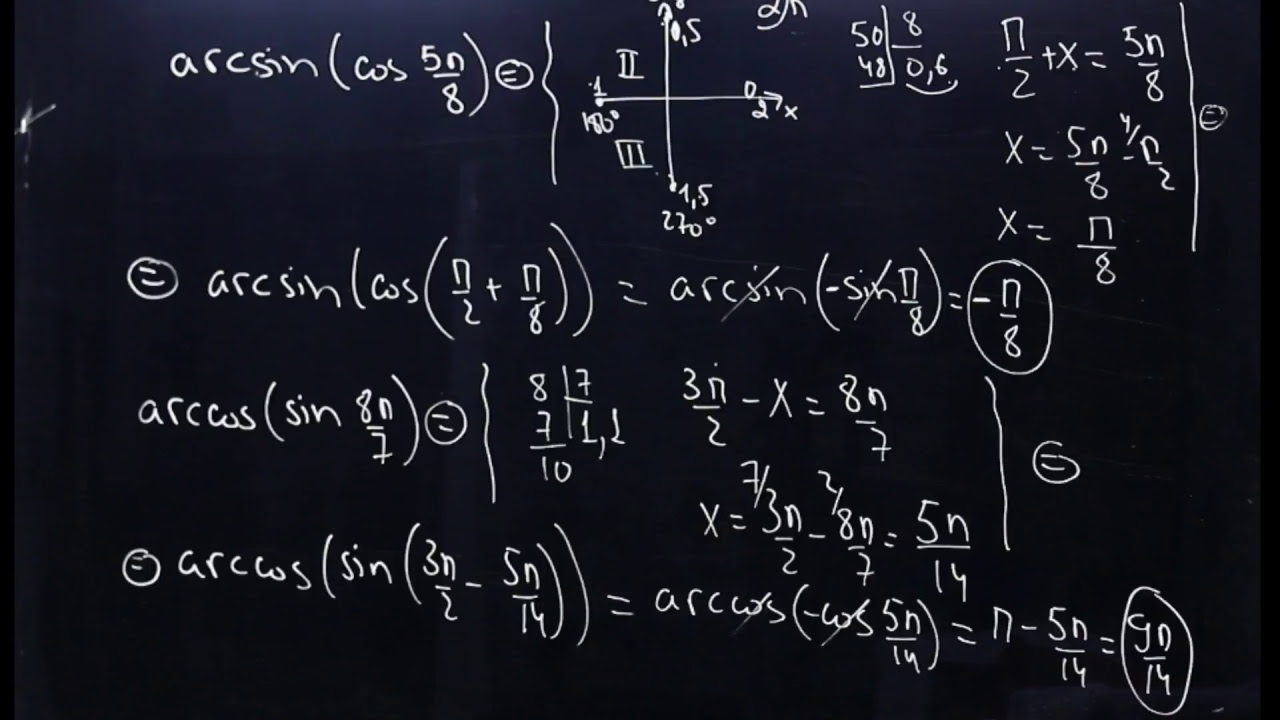 arcsin(cos 5π/8) =
II
III
0,5
1
180°
0
2
x
1,5
270°
2π
50 | 8
48 | 0,6
π/2 + x = 5π/8
x = 5π/8 - 4/π/2
x = π/8
=
= arcsin(cos(π/2 + π/8)) = arcsin(-sin π/8) = -π/8
arccos(sin 8π/7) =
8 | 7
7 | 1,1
10
3π/2 - x = 8π/7
x = 7/3π/2 - 2/8π/7 = 5π/14
=
= arccos(sin(3π/2 - 5π/14)) = arccos(-cos 5π/14) = π - 5π/14 = 9π/14